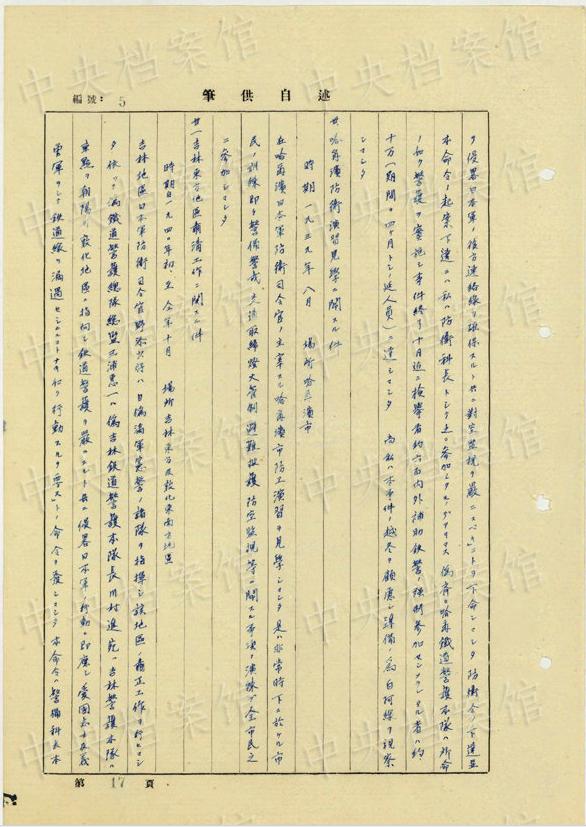 筆供自述
編號： 5
ヲ侵略日本軍ノ後方連絡線ヲ確保スルト共ニ対空監視ヲ厳ニスベシトヲ下命シマシタ 防衛令ノ下達並
本命令ノ起案下達ニハ私ハ防衛科長トシテ 参加シタ 偽 哈爾濱鉄道警護本隊ハ所命
ノ如ク警護ヲ実施シ事件終了十月迄ニ検挙者約六百内外補助鉄警ノ強制参加セシメラレタル者ハ約
十万（期間ヲ四ヶ月トシ延人員）ニ達シマシタ 尚私ハ本事件ノ越冬ヲ顧慮シ準備ノ為白阿線ヲ視察
シマシタ
廿 哈爾濱防衛演習見學ニ関スル件
時期 一九三九年八月 場所 哈爾濱市
在哈爾濱日本軍防衛司令官ノ主宰スル哈爾濱市防空演習ヲ見學シマシタ 是ハ非常時下ニ於ケル市
民ノ訓練即チ警備警戒、交通取締燈火管制 避難救護 防空監視等ニ関スル事項ヲ演練シ全市民之
ニ参加シマシタ
廿一 吉林東方地區粛清工作ニ関スル件
時期 自一九四〇年初 至全年十月 場所 吉林東方及敦化東南方地區
吉林地區日本軍防衛司令官野添少将ハ日偽満軍憲警ノ諸隊ヲ指揮シ該地區ノ粛正工作ヲ行ヒマシ
タ 依ッテ偽満鐵道警護総隊総監三浦惠一ハ偽吉林鉄道警護本隊長川村進ヲシテ吉林警護本隊ハ
重點ヲ朝陽川敦化地區ニ指向シ鉄道警護ヲ厳ニスルト共ニ侵略日本軍ノ行動ニ即應シ愛國志士及義
勇軍ヲシテ鉄道線ヲ漏過セシメルコトナキ如ク行動スルヲ要ストノ命令ヲ發シマシタ 本命令ハ警備科長本
第 17 頁
中央档案馆